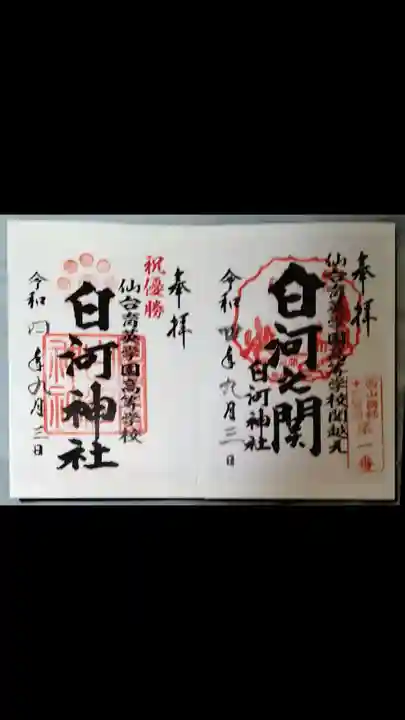 奉拝
仙台育英学園高等学校関越元
白河之関
白河神社
令和四年九月三日
奉拝
祝優勝
仙台育英学園高等学校
白河神社
令和四年九月三日